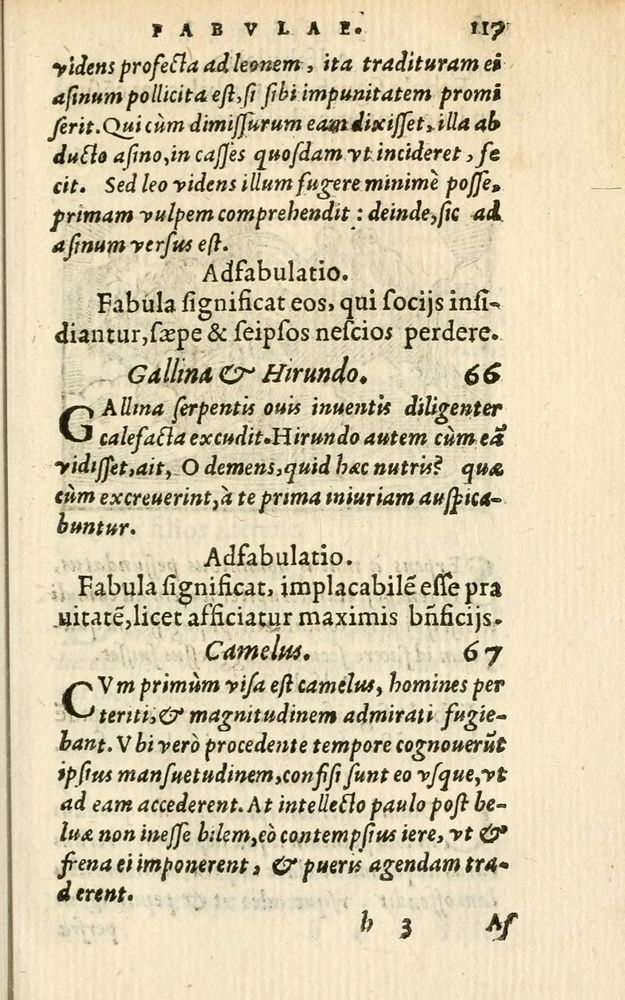 FABVLAE. 117
videns profecta ad leonem, ita tradituram ei
asinum pollicita est, si sibi impunitatem promi
serit. Qui cùm dimissurum eam dixisset, illa ab
ducto asino, in casses quosdam vt incideret, fe
cit. Sed leo videns illum fugere minimè posse,
primam vulpem comprehendit : deinde, sic ad
asinum versus est.
Adfabulatio.
Fabula significat eos, qui socijs insi-
diantur, sæpe & seipsos nescios perdere.
Gallina & Hirundo. 66
GAllina serpentis ouis inuentis diligenter
calefacta excudit. Hirundo autem cùm eã
vidisset, ait, O demens, quid hæc nutris? quæ
cùm excreuerint, à te prima iniuriam auspica-
buntur.
Adfabulatio.
Fabula significat, implacabilẽ esse pra
uitatẽ, licet afficiatur maximis bñficijs.
Camelus. 67
CVm primùm visa est camelus, homines per
teriti, & magnitudinem admirati fugie-
bant. Vbi verò procedente tempore cognouerũt
ipsius mansuetudinem, confisi sunt eo vsque, vt
ad eam accederent. At intellecto paulo post be-
luæ non inesse bilem, eò contempsius iere, vt &
frena ei imponerent, & pueris agendam tra-
derent.
h 3 As